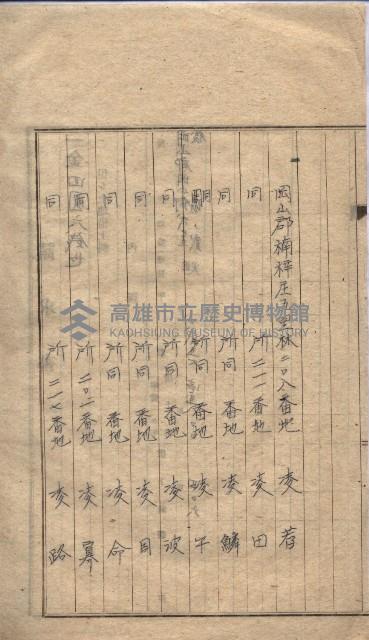 岡山郡楠梓庄五里林二〇八番地 凌 着
同 所二一一番地 凌 田
同 所同 番地 凌 鱗
同 所同 番地 凌 午
同 所同 番地 凌 波
同 所同 番地 凌 目
同 所同 番地 凌 命
同 所二〇二番地 凌
同 所二一七番地 凌 路
高雄市立歷史博物館
KAOHSIUNG MUSEUM OF HISTORY